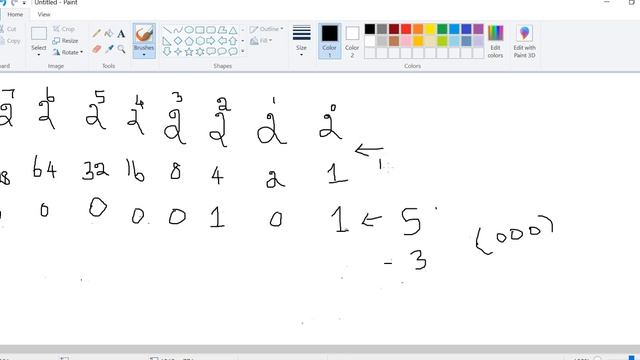 Untitled - Paint
Cut
Copy
Select
Crop
Resize
Rotate
Brushes
Outline
Fill
Size
Color 1
Color 2
Edit colors
Edit with Paint 3D
Clipboard
Image
Tools
Shapes
Colors
7 6 5 4 3 2 1 0
2 2 2 2 2 2 2 2
8 64 32 16 8 4 2 1 ←
0 0 0 0 1 0 1 ← 5 (000)
- 3